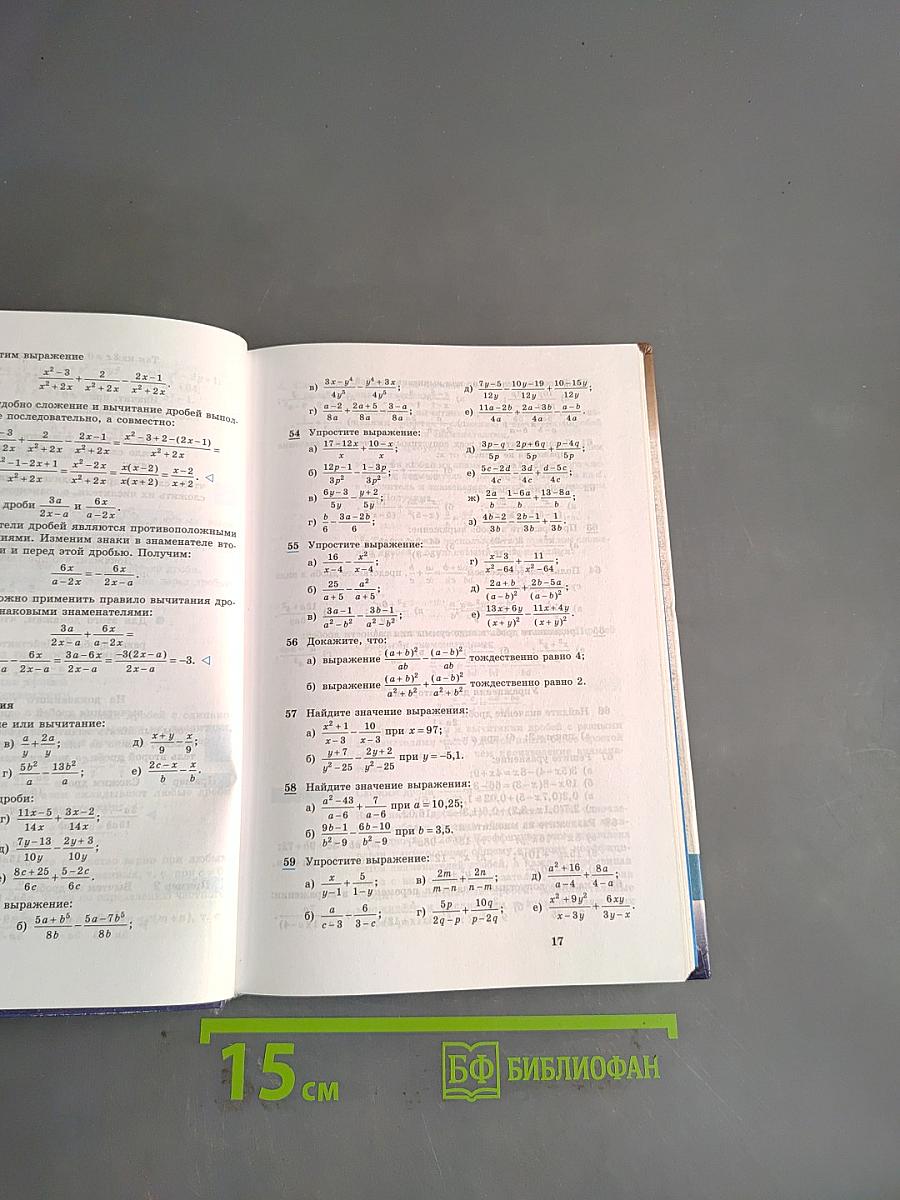 тим выражение
x²-3/x²+2x + 2/x²+2x - 2x-1/x²+2x.
удобно сложение и вычитание дробей выпол-
е последовательно, а совместно:
-3/2x + 2/x²+2x - 2x-1/x²+2x = x²-3+2-(2x-1)/x²+2x =
²-1-2x+1/x²+2x = x²-2x/x²+2x = x(x-2)/x(x+2) = x-2/x+2. ◁
дроби 3a/2x-a и 6x/a-2x.
тели дробей являются противоположными
иями. Изменим знаки в знаменателе вто-
и и перед этой дробью. Получим:
6x/a-2x = - 6x/2x-a.
ожно применить правило вычитания дро-
наковыми знаменателями:
3a/2x-a + 6x/a-2x =
- 6x/2x-a = 3a-6x/2x-a = -3(2x-a)/2x-a = -3. ◁
ия
е или вычитание:
в) a/y + 2a/y; д) x+y/9 - x/9;
г) 5b²/a - 13b²/a; е) 2c-x/b - x/b.
дроби:
г) 11x-5/14x + 3x-2/14x;
д) 7y-13/10y - 2y+3/10y;
е) 8c+25/6c + 5-2c/6c.
выражение:
б) 5a+b⁵/8b - 5a-7b⁵/8b;
в) 3x-y⁴/4y⁵ - y⁴+3x/4y⁵; д) 7y-5/12y - 10y-19/12y + 10-15y/12y;
г) a-2/8a + 2a+5/8a - 3-a/8a; е) 11a-2b/4a - 2a-3b/4a + a-b/4a.
54 Упростите выражение:
а) 17-12x/x + 10-x/x; д) 3p-q/5p - 2p+6q/5p + p-4q/5p;
б) 12p-1/3p² - 1-3p/3p²; е) 5c-2d/4c - 3d/4c + d-5c/4c;
в) 6y-3/5y - y+2/5y; ж) 2a/b - 1-6a/b + 13-8a/b;
г) b/6 - 3a-2b/6; з) 4b-2/3b - 2b-1/3b + 1/3b.
55 Упростите выражение:
а) 16/x-4 - x²/x-4; г) x-3/x²-64 + 11/x²-64;
б) 25/a+5 - a²/a+5; д) 2a+b/(a-b)² + 2b-5a/(a-b)²;
в) 3a-1/a²-b² - 3b-1/a²-b²; е) 13x+6y/(x+y)² - 11x+4y/(x+y)².
56 Докажите, что:
а) выражение (a+b)²/ab - (a-b)²/ab тождественно равно 4;
б) выражение (a+b)²/a²+b² + (a-b)²/a²+b² тождественно равно 2.
57 Найдите значение выражения:
а) x²+1/x-3 - 10/x-3 при x=97;
б) y+7/y²-25 - 2y+2/y²-25 при y=-5,1.
58 Найдите значение выражения:
а) a²-43/a-6 + 7/a-6 при a=10,25;
б) 9b-1/b²-9 - 6b-10/b²-9 при b=3,5.
59 Упростите выражение:
а) x/y-1 + 5/1-y; в) 2m/m-n + 2n/n-m; д) a²+16/a-4 + 8a/4-a;
б) a/c-3 - 6/3-c; г) 5p/2q-p + 10q/p-2q; е) x²+9y²/x-3y + 6xy/3y-x.
17
15 см
БФ БИБЛИОФАН